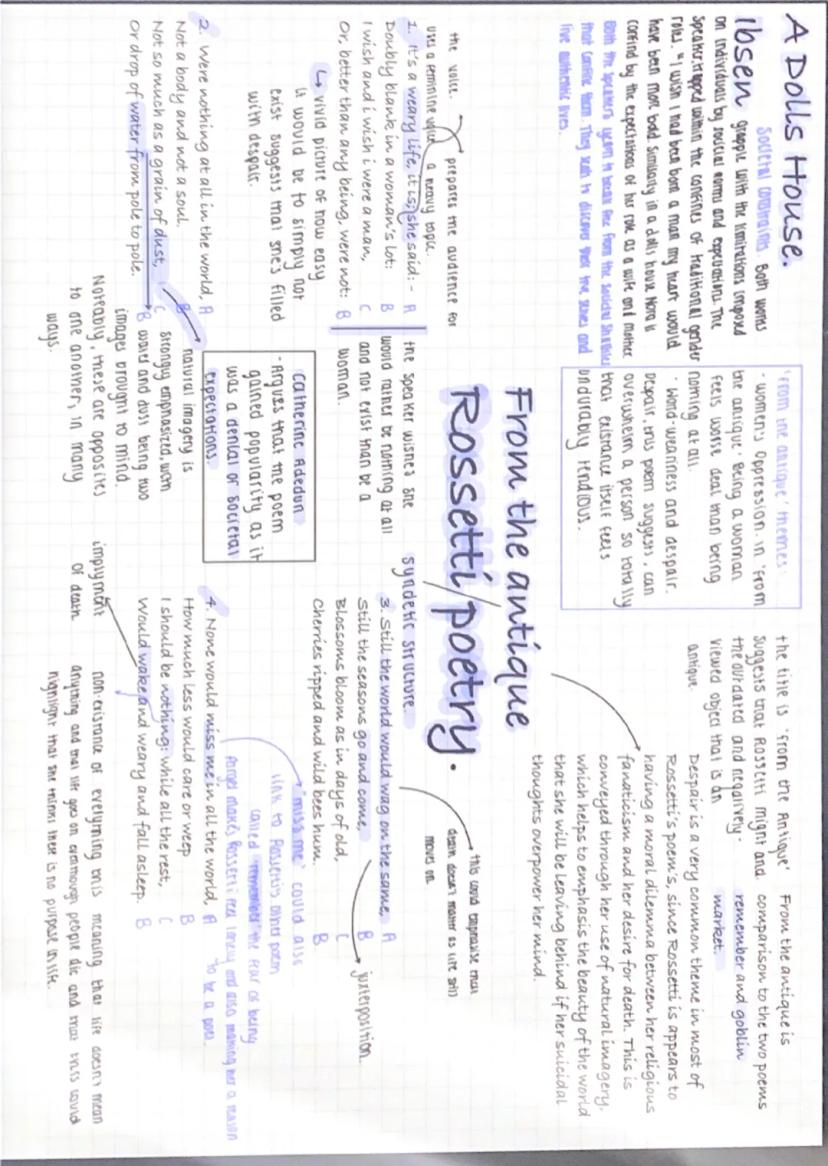 A Dolls House.
Ibsen
Societal constraints. Both works
grapple with the limitations imposed
on individuals by societal norms and expectations. The
speaker, trapped within the confines of traditional gender
roles. "I wish I had been born a man my heart would
have been more bold. Similarly in a dolls house Nora is
confind by the expectations of her role as a wife and mother
Both the speakers yearn to break free from the societal shackles
that confine them. They seek to discover their true selves and
live authentic lives.
'from the antique' themes:
- women's Oppression. In 'From
the antique' Being a woman
feels worse deal than being
nothing at all.
- World-weariness and despair.
Despair, this poem suggests, can
overwhelm a person so totally
that existance itself feels
undurably tendious.
the title is 'from the Antique'
suggests that Rossetti might and
the ourdated and negatively-
viewed object that is an
antique.
From the antique is
comparison to the two poems
remember and goblin
market.
Despair is a very common theme in most of
Rossetti's poem's, since Rossetti is appears to
having a moral dilemma between her religious
fanaticism and her desire for death. This is
conveyed through her use of natural imagery.
which helps to emphasis the beauty of the world
that she will be leaving behind if her suicidal
thoughts overpower her mind.
From the antique
Rossetti/poetry.
the voice.
uses a feminine voice
prepares the audience for
a heavy topic.
1. It's a weary life, it is; she said:- A
Doubly blank in a woman's lot: B
I wish and i wish i were a man, C
Or, better than any being, were not: B
↳ vivid picture of how easy
it would be to simply not
exist suggests that she's filled
with despair.
the speaker wishes she
would rather be nothing at all
and not exist than be a
woman.
2. Were nothing at all in the world, A
Not a body and not a soul. B
Not so much as a grain of dust, C
Or drop of water from pole to pole. B
natural imagery is
strongly emphasized, with
waves and dust being two
images brought to mind.
Noteably, these are opposites
to one another, in many
ways.
Catherine Adedun
- Argues that the poem
gained popularity as it
was a denial of societal
expectations.
syndetic structure.
3. Still the world would wag on the same, A
Still the seasons go and come, B
Blossoms bloom as in days of old, C
Cherries ripped and wild bees hum. B
this could emphasise that
death doesn't matter as life still
moves on.
juxterposition.
4. None would miss me in all the world, A
How much less would care or weep B
I should be nothing: while all the rest, C
Would wake and weary and fall asleep. B
'miss me' could also
link to Rossetti's other poem
called 'remember' the fear of being
forget makes Rossetti feel lonely and also making her a reason
to be a poet.
implyment
of death
non-existance of everything this meaning that life doesn't mean
anything and that life goes on eventhough people die and that this could
highlight that she thinks there is no purpose in life.